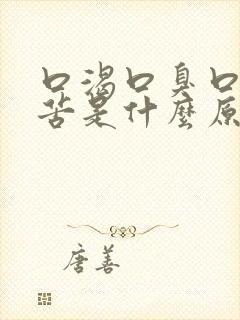 口渴口臭口
苦是什麼原
唐善